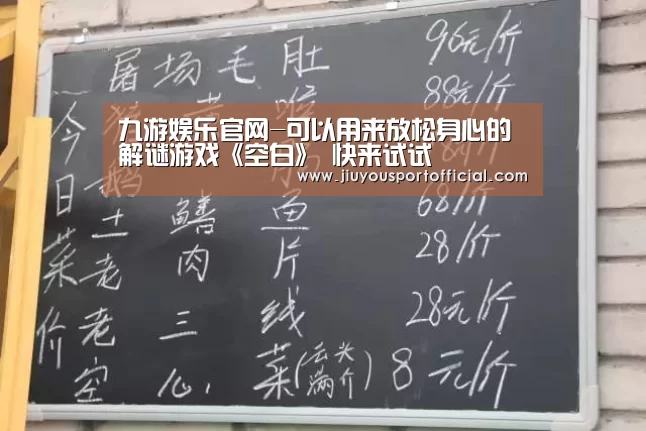 今日菜价
屠场毛肚 96元/介
88元/介
九游娱乐官网-可以用来放松身心的
解谜游戏《空白》 快来试试
www.jiuyousportofficial.com
土鳝鱼 68/介
老肉片 28/介
老三线 28元/介
空心菜(云头满介) 8元/介